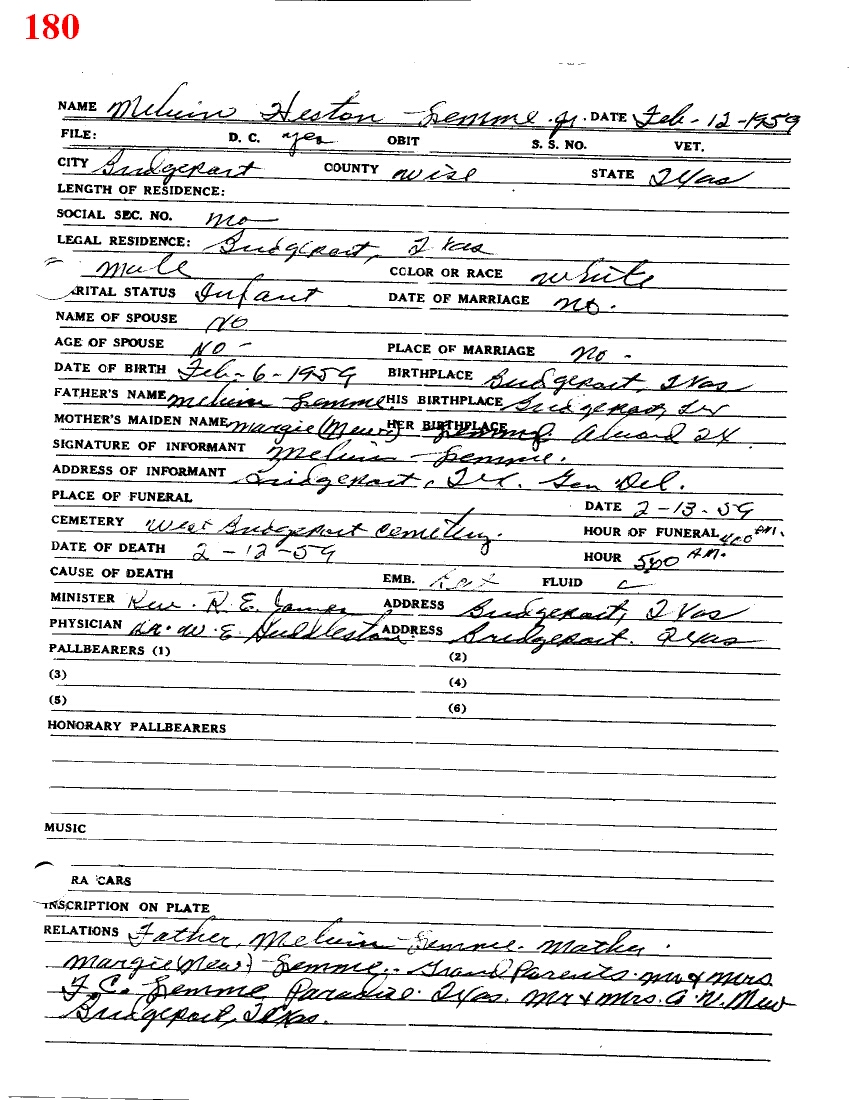 180
NAME Melvin Heston Lemme Jr. DATE Feb-12-1959
FILE: D. C. yes OBIT S. S. NO. VET.
CITY Bridgeport COUNTY Wise STATE Texas
LENGTH OF RESIDENCE:
SOCIAL SEC. NO. no
LEGAL RESIDENCE: Bridgeport, Texas
male COLOR OR RACE White
RITAL STATUS Infant DATE OF MARRIAGE no.
NAME OF SPOUSE NO
AGE OF SPOUSE NO - PLACE OF MARRIAGE no -
DATE OF BIRTH Feb-6-1959 BIRTHPLACE Bridgeport, Texas
FATHER'S NAME Melvin Lemme HIS BIRTHPLACE Bridgeport, Tex
MOTHER'S MAIDEN NAME Margie (New) HER BIRTHPLACE Lemme Alvord TX.
SIGNATURE OF INFORMANT Melvin Lemme.
ADDRESS OF INFORMANT Bridgeport, Tex. Gen Del.
PLACE OF FUNERAL DATE 2-13-59
CEMETERY West Bridgeport Cemetery. HOUR OF FUNERAL 4:00 PM.
DATE OF DEATH 2-12-59 HOUR 5:00 A.M.
CAUSE OF DEATH EMB. FLUID
MINISTER Rev. R. E. James ADDRESS Bridgeport, Texas
PHYSICIAN Dr. W. E. Huddleston ADDRESS Bridgeport. Texas
PALLBEARERS (1) (2)
(3) (4)
(5) (6)
HONORARY PALLBEARERS
MUSIC
RA CARS
INSCRIPTION ON PLATE
RELATIONS Father, Melvin Lemme. Mother.
Margie (New) Lemme,. Grand Parents. Mr & Mrs.
F. C. Lemme Paradise. Texas. Mr & Mrs. A. N. New
Bridgeport, Texas.